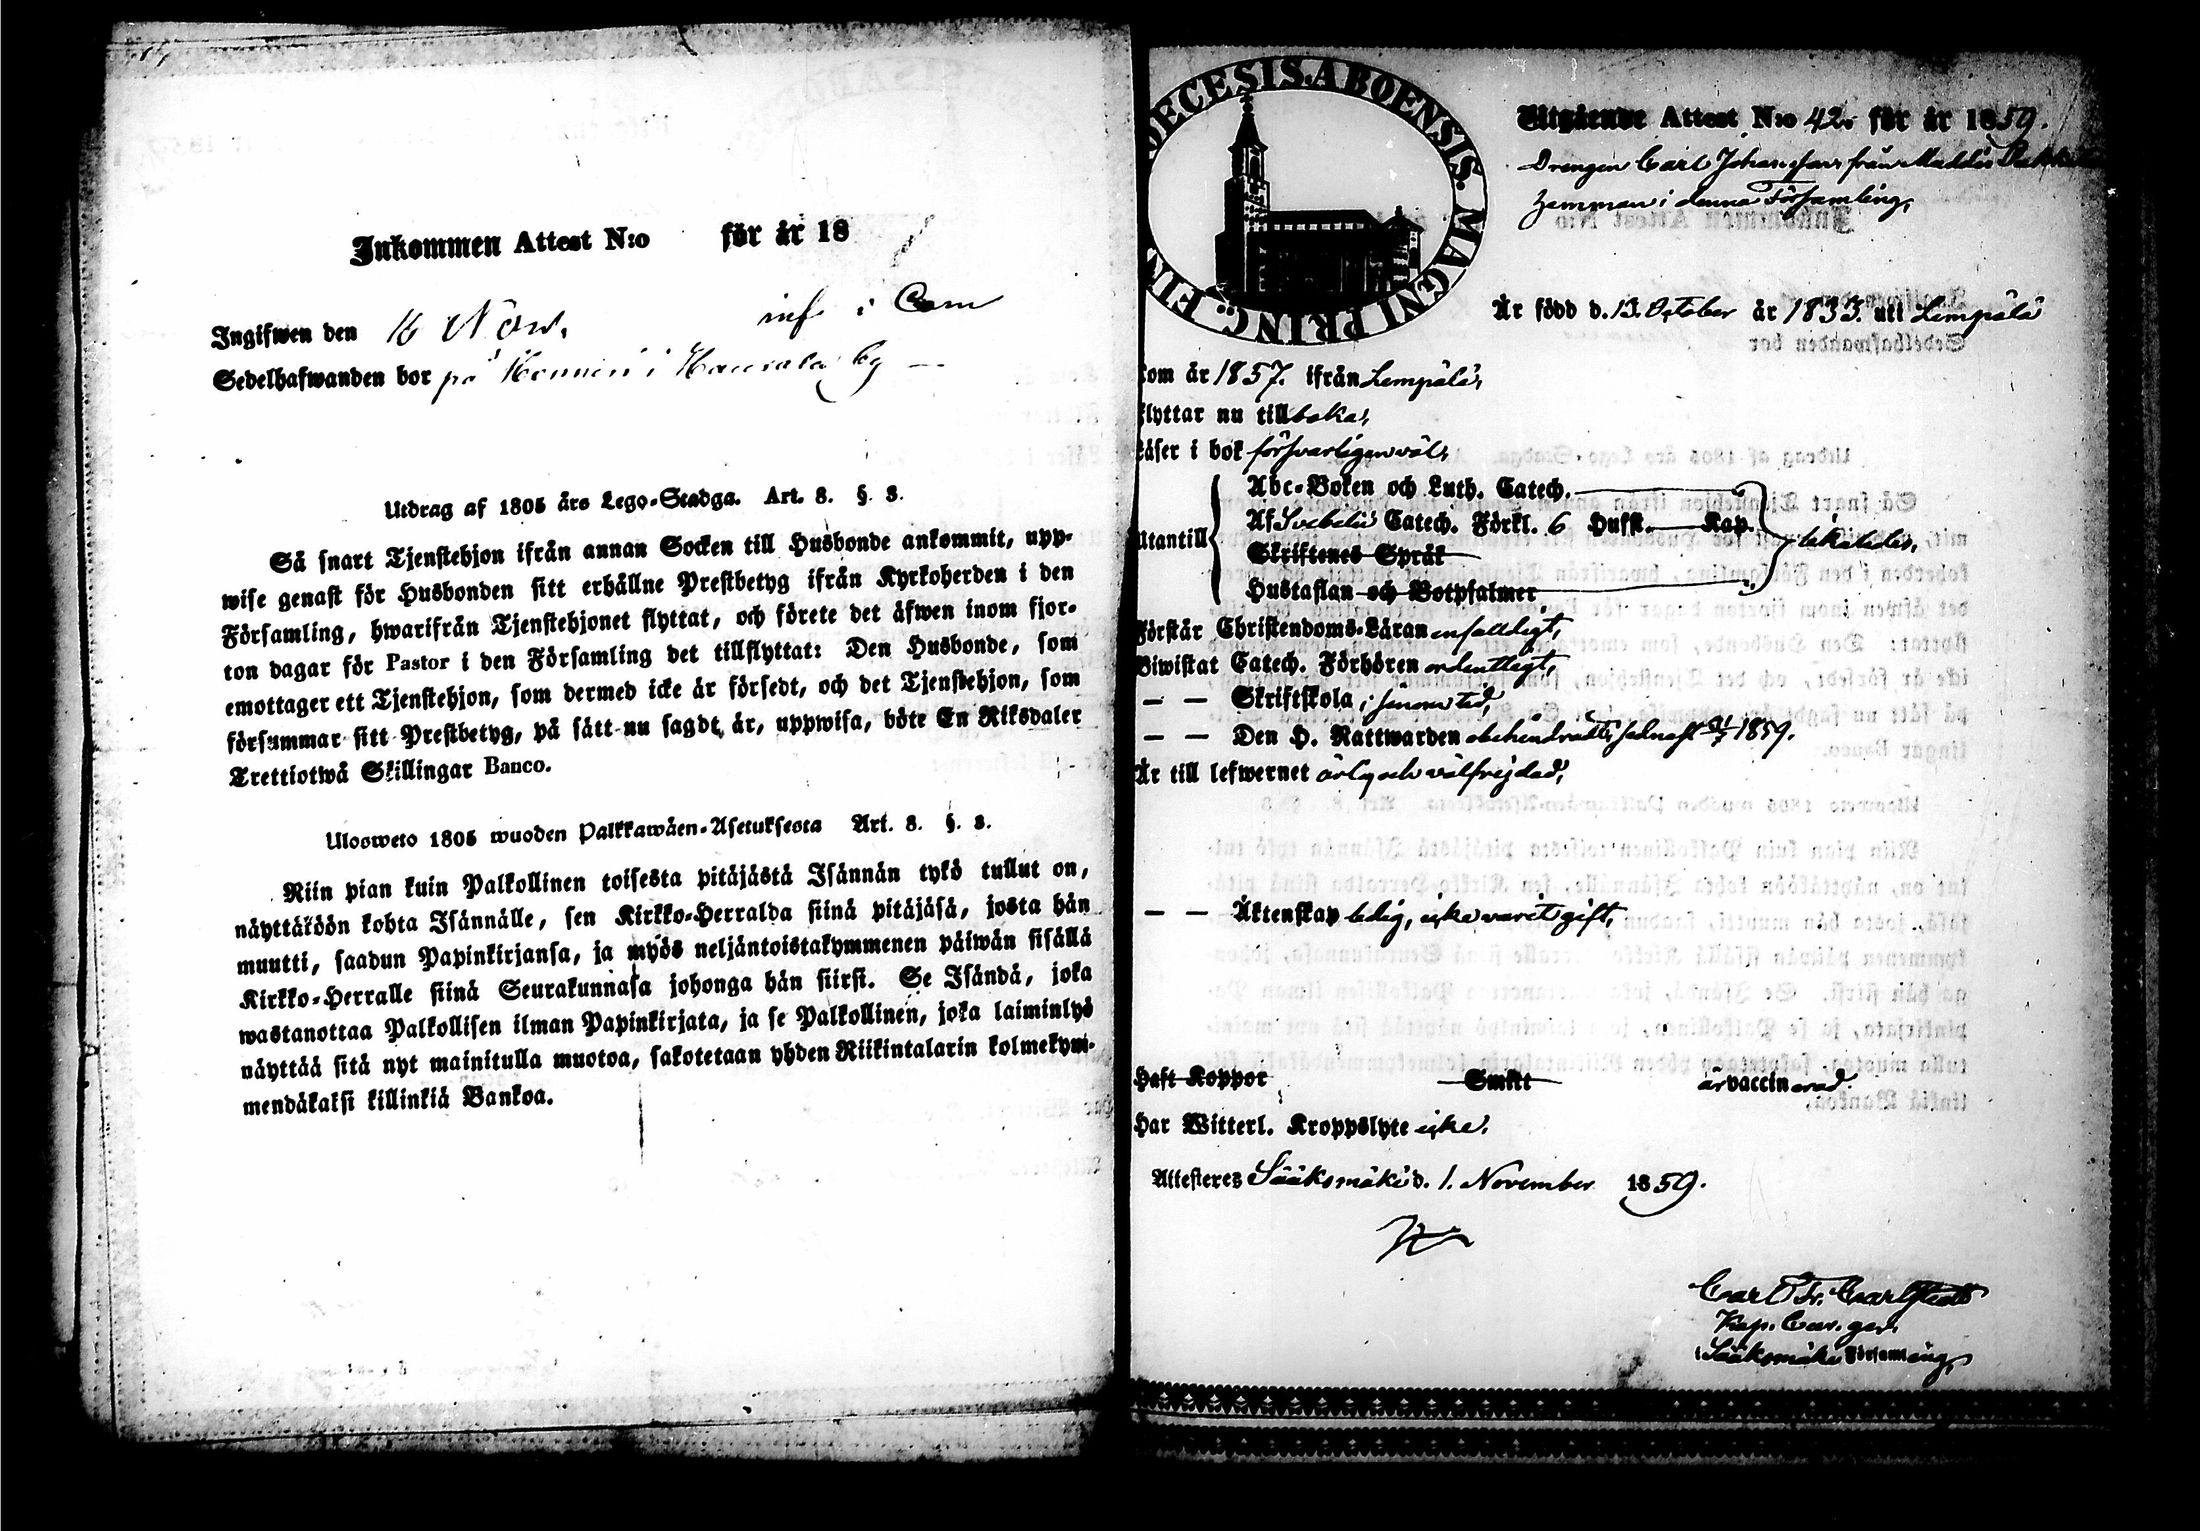 Inkommen Attest N:o för år 18
Ingifwen den 16 Nov. inf i Com
Sedelhafwanden bor på i by
Utdrag af 1805 års Lego-Stadga. Art. 8. §. 3.
Så snart Tjenstehjon ifrån annan Socken till Husbonde ankommit, upp-
wise genast för Husbonden sitt erhållne Prestbetyg ifrån Kyrkoherden i den
Församling, hwarifrån Tjenstehjonet flyttat, och förete det äfwen inom fjor-
ton dagar för Pastor i den Församling det tillflyttat: Den Husbonde, som
emottager ett Tjenstehjon, som dermed icke är försedt, och det Tjenstehjon, som
försummar sitt Prestbetyg, på sätt nu sagdt är, uppwisa, böte En Riksdaler
Trettiotwå Skillingar Banco.
Ulosweto 1805 wuoden Palkkawäen-Asetuksesta Art. 8. §. 3.
Niin pian kuin Palkollinen toisesta pitäjästä Isännän tykö tullut on,
näyttäköön kohta Isännälle, sen Kirkko-Herralda siinä pitäjäsä, josta hän
muutti, saadun Papinkirjansa, ja myös neljäntoistakymmenen päiwän sisällä
Kirkko-Herralle siinä Seurakunnasa johonga hän siirsi. Se Isändä, joka
wastanottaa Palkollisen ilman Papinkirjata, ja se Palkollinen, joka laiminlyö
näyttää sitä nyt mainitulla muotoa, sakotetaan yhden Riikintalarin kolmekym-
mendäkaksi killinkiä Bankoa.
DECESIS. ABOENSIS. MAGNI PRINC. FIN
Utgående Attest N:o 42. för år 1859.
Drengen Carl Johansson från Maddis
hemman i denna Församling,
Är född d. 13. October år 1833. uti Lempälä
kom år 1857. ifrån Lempälä,
flyttar nu tillbaka,
läser i bok försvarligen väl,
Utantill
Abc-Boken och Luth. Catech.
Af Svebelii Catech. Förkl. 6 Hufst. Kap.
Skriftenes Språk
Hustaflan och Botpsalmer
Förstår Christendoms-Läran enfalldigt,
Biwistat Catech. Förhören ordentligt,
— — Skriftskola i sinom tid,
— — Den H. Nattwarden obehindradt, sednast 31/7 1859.
Är till lefwernet ärlig och välfrejdad,
— — Äktenskap ledig, icke varit gift,
Haft Koppor Smitt är vaccinerad.
Har Witterl. Kroppslyte icke.
Attesteres Sääksmäki d. 1. November 1859.
Carl Fr. Carlstedt
Kap.
i Sääksmäki Församling,